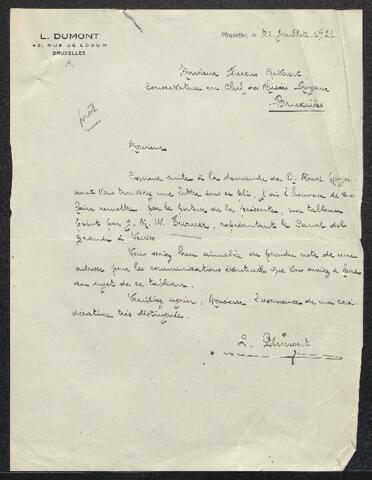 L. DUMONT
43, RUE DE LOXUM
BRUXELLES
Bruxelles, le Juillet 1921
Monsieur Fierens Gevaert
Conservateur en Chef des Musées Royaux
Bruxelles
Monsieur
Comme suite à la demande de M. Henri
dont vous trouverez une lettre sous ce pli, j'ai l'honneur de vous
faire remettre par le porteur de la présente, un tableau
peint par J. M. W. Turner, représentant le Canal del
Grande à Venise
Vous seriez bien aimable de prendre note de mon
adresse pour les communications éventuelles que vous auriez à faire
au sujet de ce tableau.
Veuillez agréer, Monsieur l'assurance de ma consi-
dération très distinguée.
L. Dumont